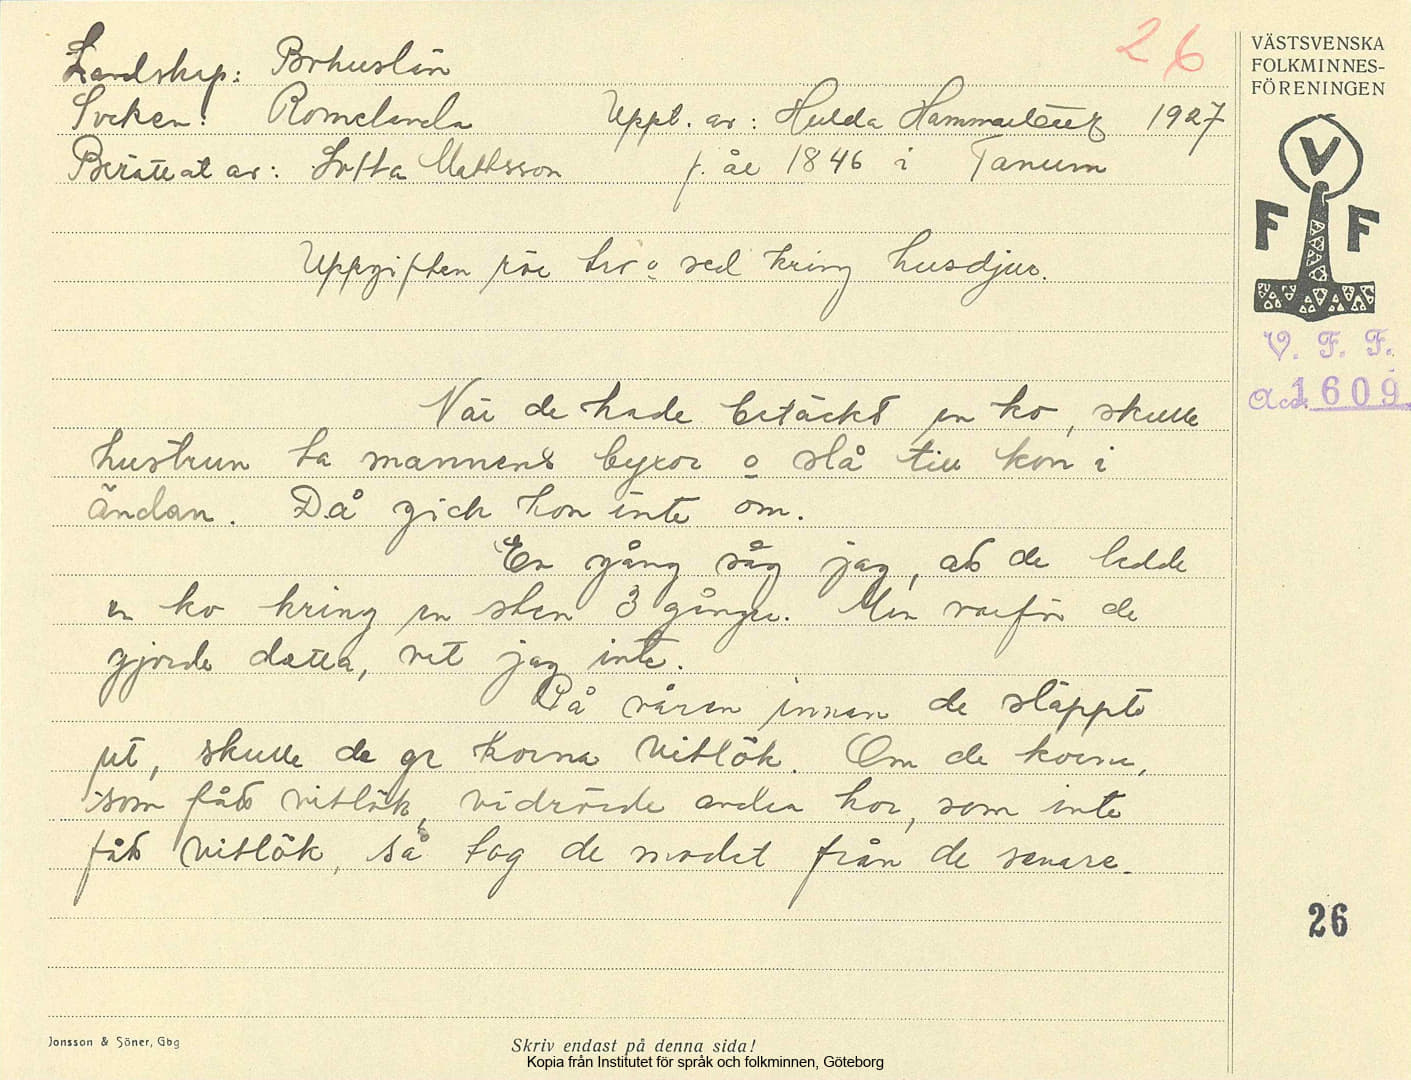 26
VÄSTSVENSKA
FOLKMINNES-
FÖRENINGEN
Landskap: Bohuslän
Socken: Romelanda Uppt. av: Hulda Hammarbäck 1927
Berättat av: Lotta Mattsson f. år 1846 i Tanum
V
F F
Uppgiften rör tro o sed kring husdjur.
V. F. F.
Acc. 1609
När de hade betäckt en ko, skulle
hustrun ta mannens byxor o slå till kon i
ändan. Då gick hon inte om.
En gång såg jag, att de ledde
en ko kring en sten 3 gånger. Men varför de
gjorde detta, vet jag inte.
På våren innan de släppte
ut, skulle de ge korna vitlök. Om de korna,
som fått vitlök, vidrörde andra kor, som inte
fått vitlök, så tog de modet från de senare.
26
Jonsson & Söner, Gbg
Skriv endast på denna sida!
Kopia från Institutet för språk och folkminnen, Göteborg